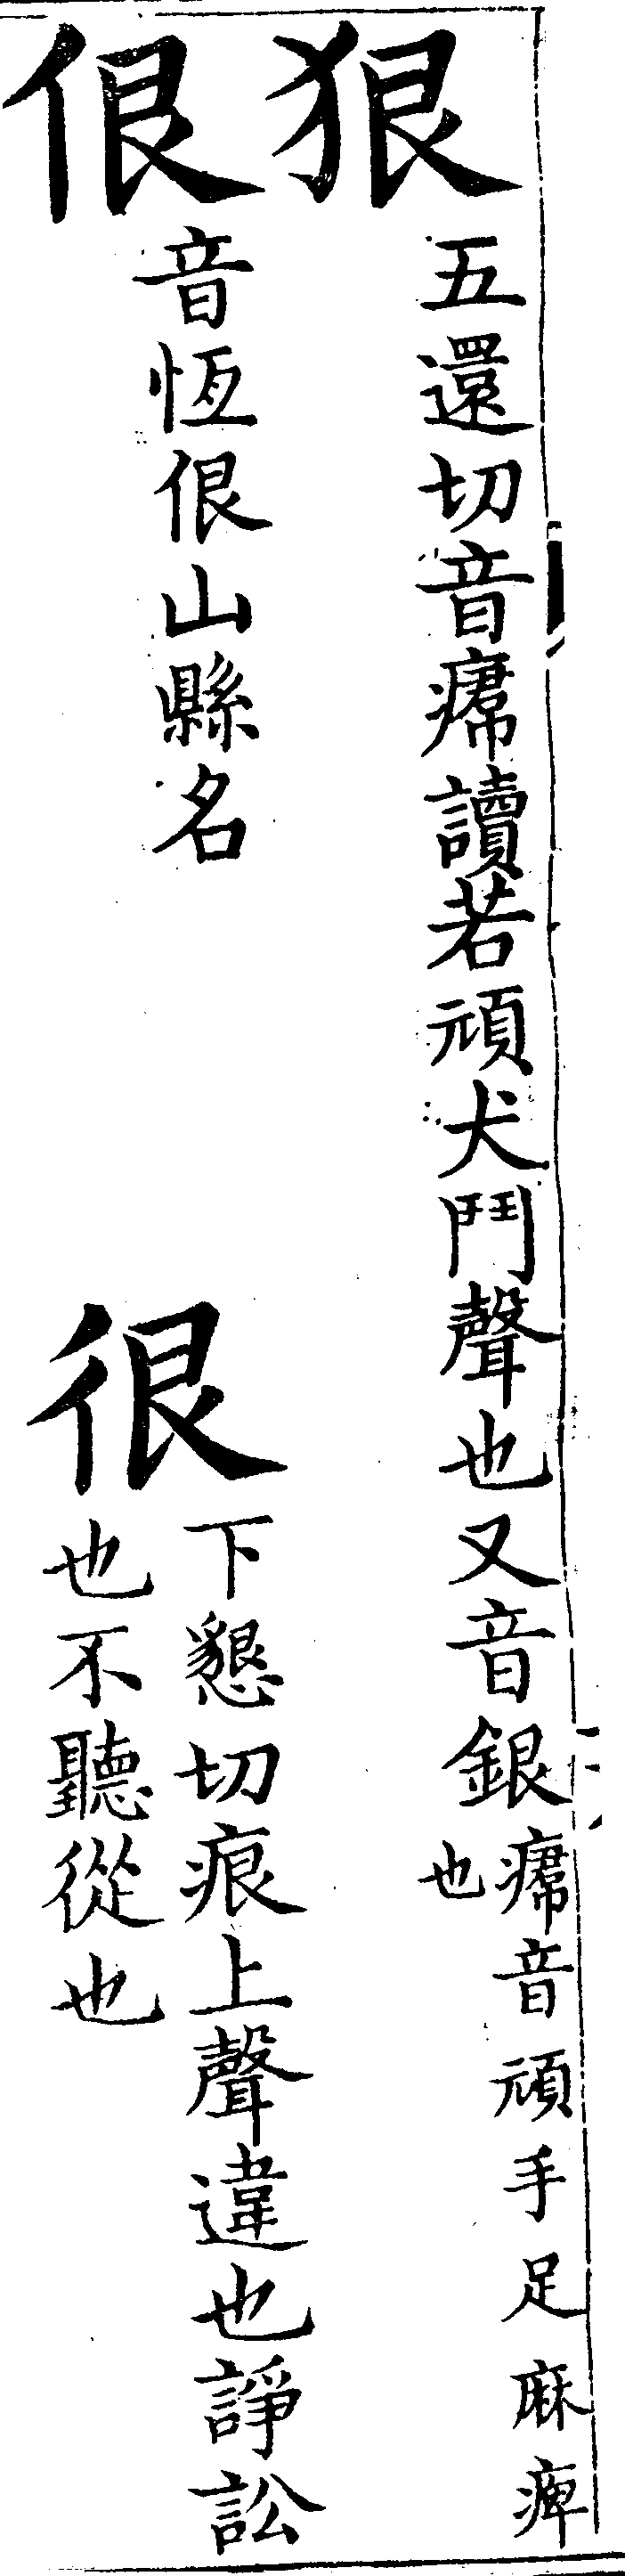 狠 五還切音㾯讀若頑犬鬥聲也又音銀㾯音頑手足麻痺也
佷 音恆佷山縣名
很 下懇切痕上聲違也諍訟也不聽從也